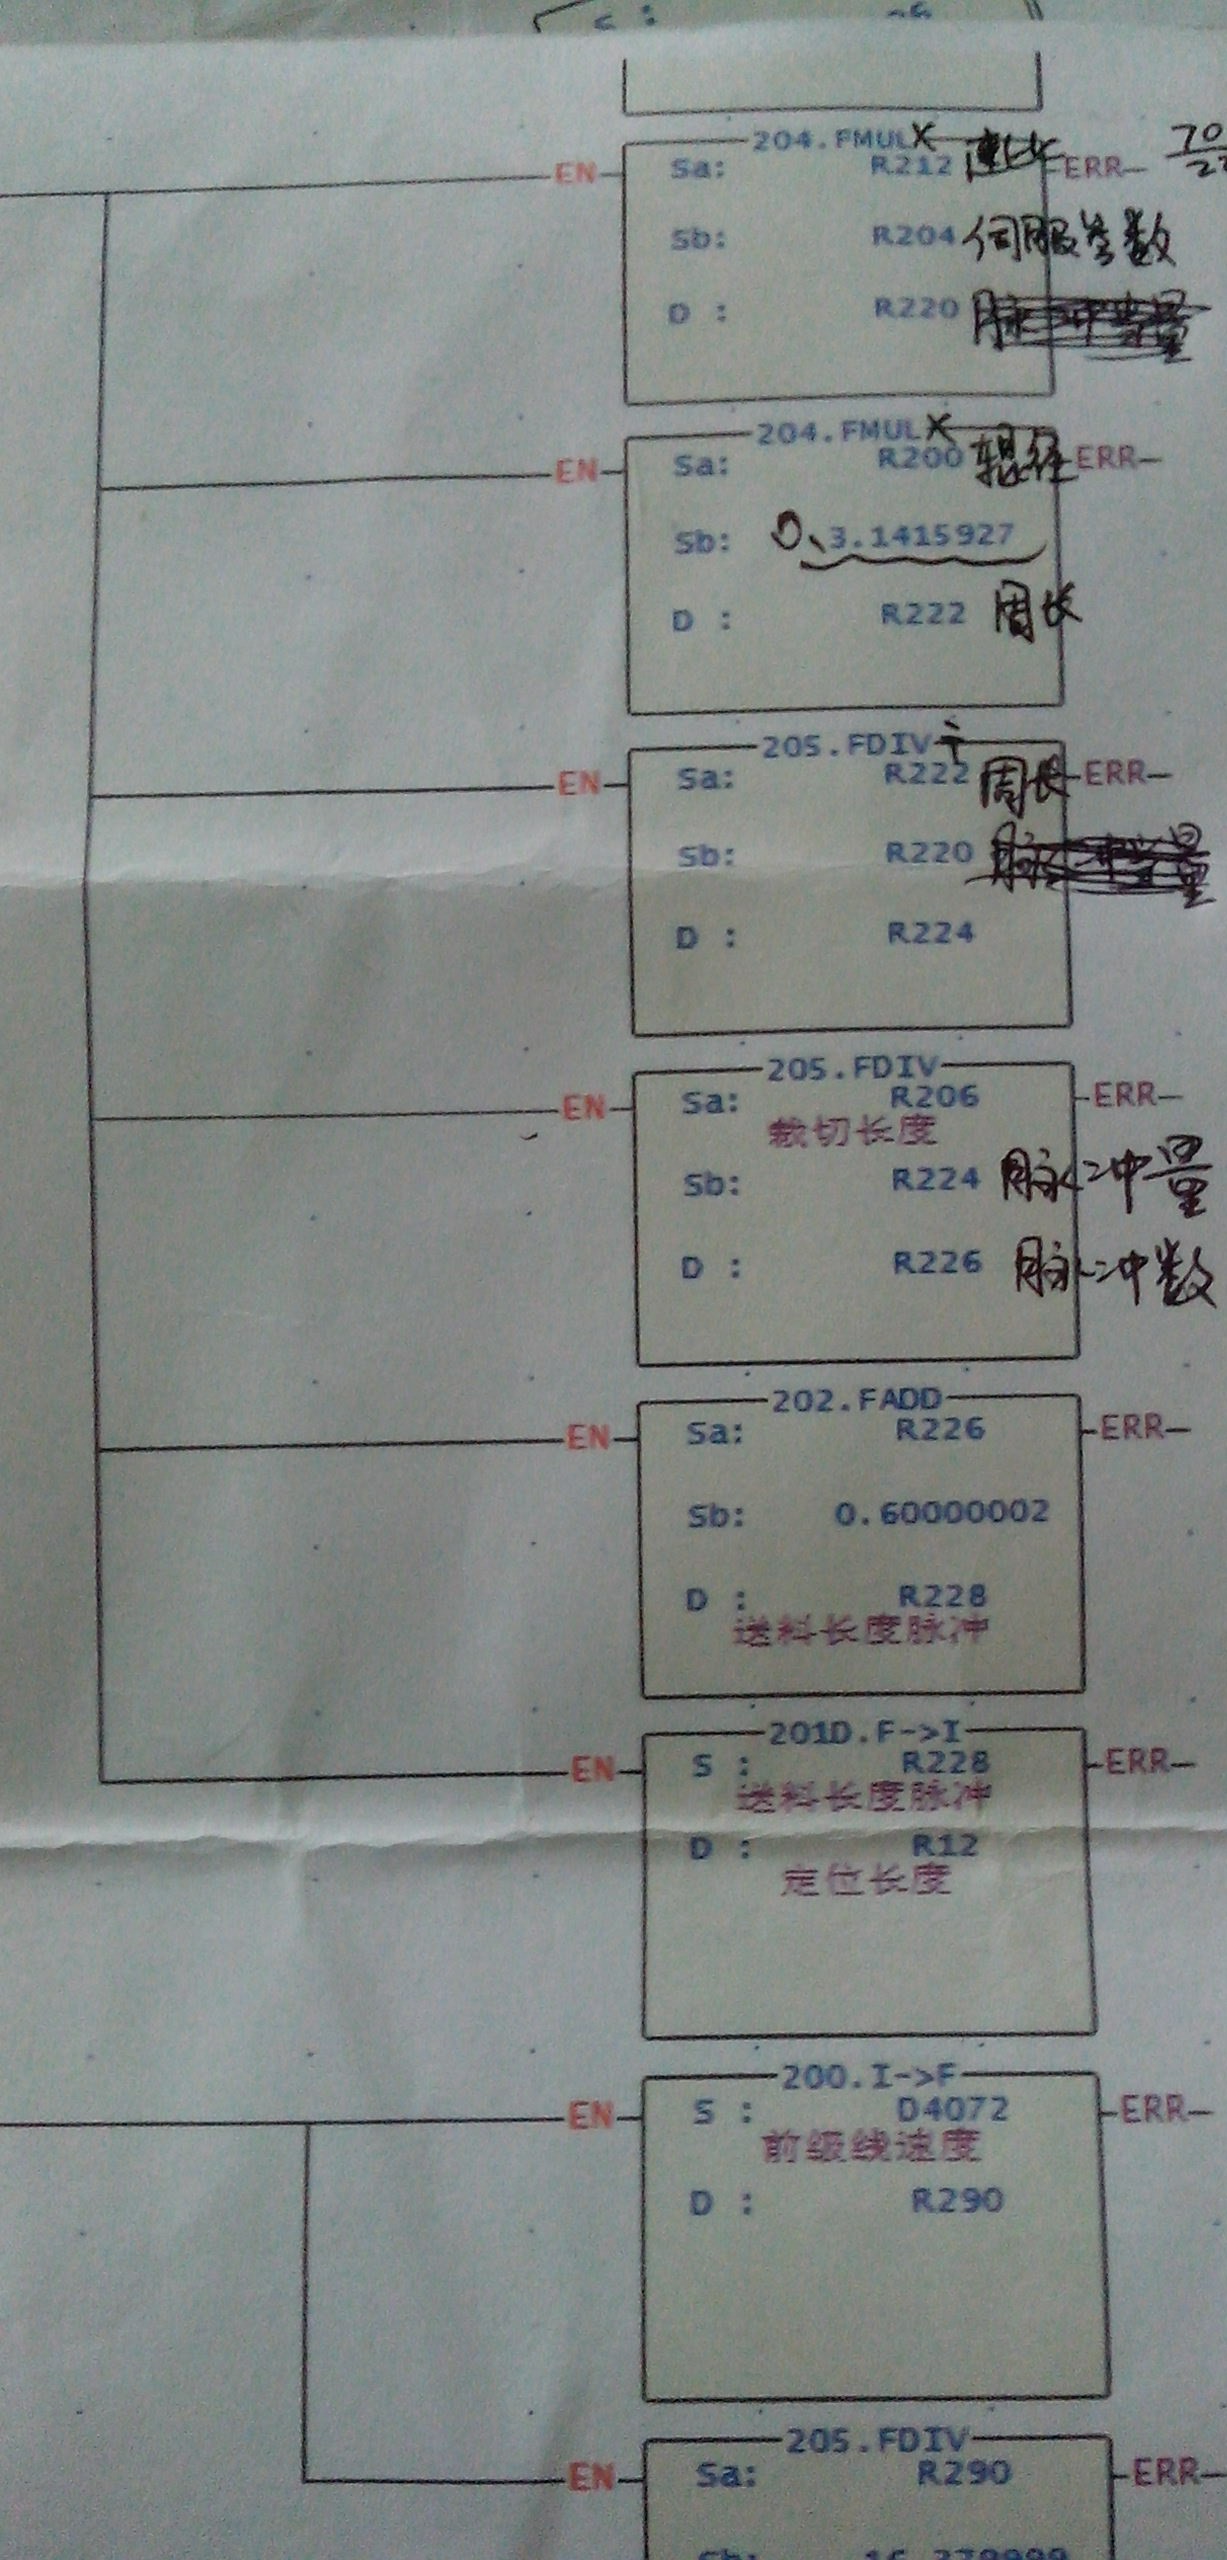 204.FMUL X
EN Sa: R212 速比 ERR 70
Sb: R204 伺服参数
D : R220 脉冲当量
204.FMUL X
EN Sa: R200 辊径 ERR
Sb: 0、3.1415927
D : R222 周长
205.FDIV ÷
EN Sa: R222 周长 ERR
Sb: R220 脉冲当量
D : R224
205.FDIV
EN Sa: R206 ERR
裁切长度
Sb: R224 脉冲当量
D : R226 脉冲数
202.FADD
EN Sa: R226 ERR
Sb: 0.60000002
D : R228
送料长度脉冲
201D.F->I
EN S : R228 ERR
送料长度脉冲
D : R12
定位长度
200.I->F
EN S : D4072 ERR
前级线速度
D : R290
205.FDIV
EN Sa: R290 ERR